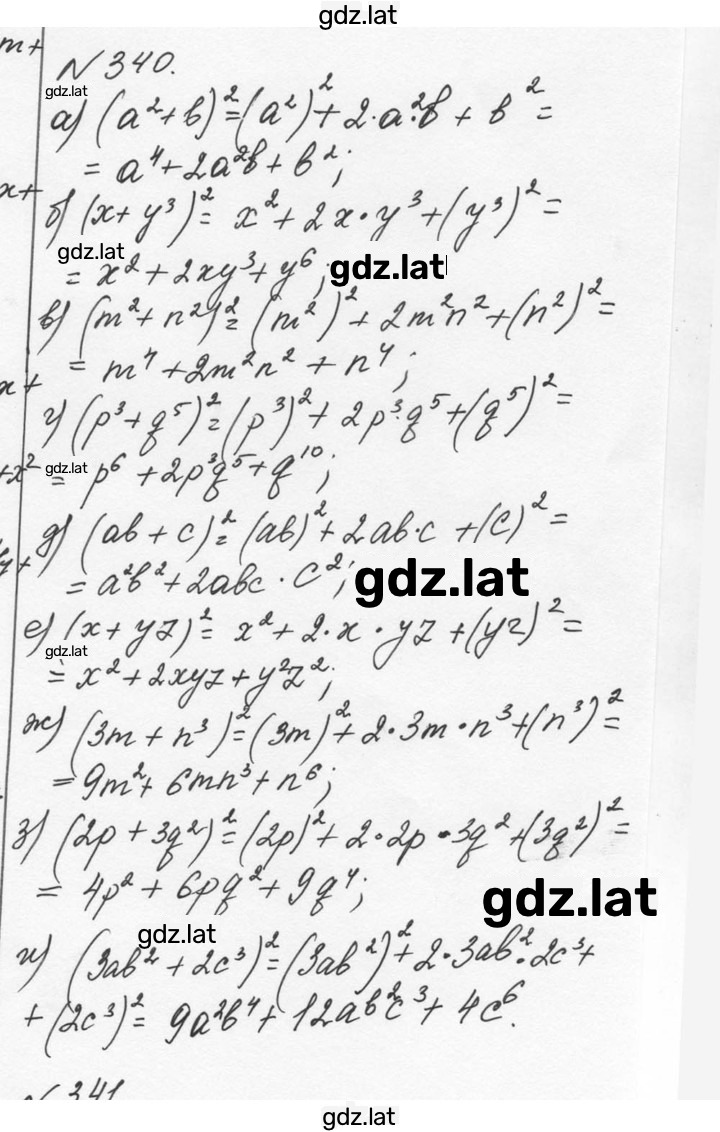 gdz.lat
m+
N 340.
gdz.lat
а) (a²+b)²=(a²)²+2·a²·b+b²=
= a⁴+2a²b+b²;
x+
б) (x+y³)²= x²+2x·y³+(y³)²=
gdz.lat
= x²+2xy³+y⁶;
gdz.lat
в) (m²+n²)²=(m²)²+2m²n²+(n²)²=
= m⁴+2m²n²+n⁴;
x+
г) (p³+q⁵)²=(p³)²+2p³·q⁵+(q⁵)²=
+x²
gdz.lat
= p⁶+2p³q⁵+q¹⁰;
д) (ab+c)²=(ab)²+2ab·c+(c)²=
= a²b²+2abc·c²;
gdz.lat
е) (x+yz)²= x²+2·x·yz+(yz)²=
gdz.lat
= x²+2xyz+y²z²;
ж) (3m+n³)²=(3m)²+2·3m·n³+(n³)²=
= 9m²+6mn³+n⁶;
з) (2p+3q²)²=(2p)²+2·2p·3q²+(3q²)²=
= 4p²+6pq²+9q⁴;
gdz.lat
gdz.lat
и) (3ab²+2c³)²=(3ab²)²+2·3ab²·2c³+
+(2c³)²= 9a²b⁴+12ab²c³+4c⁶.
N 341
gdz.lat